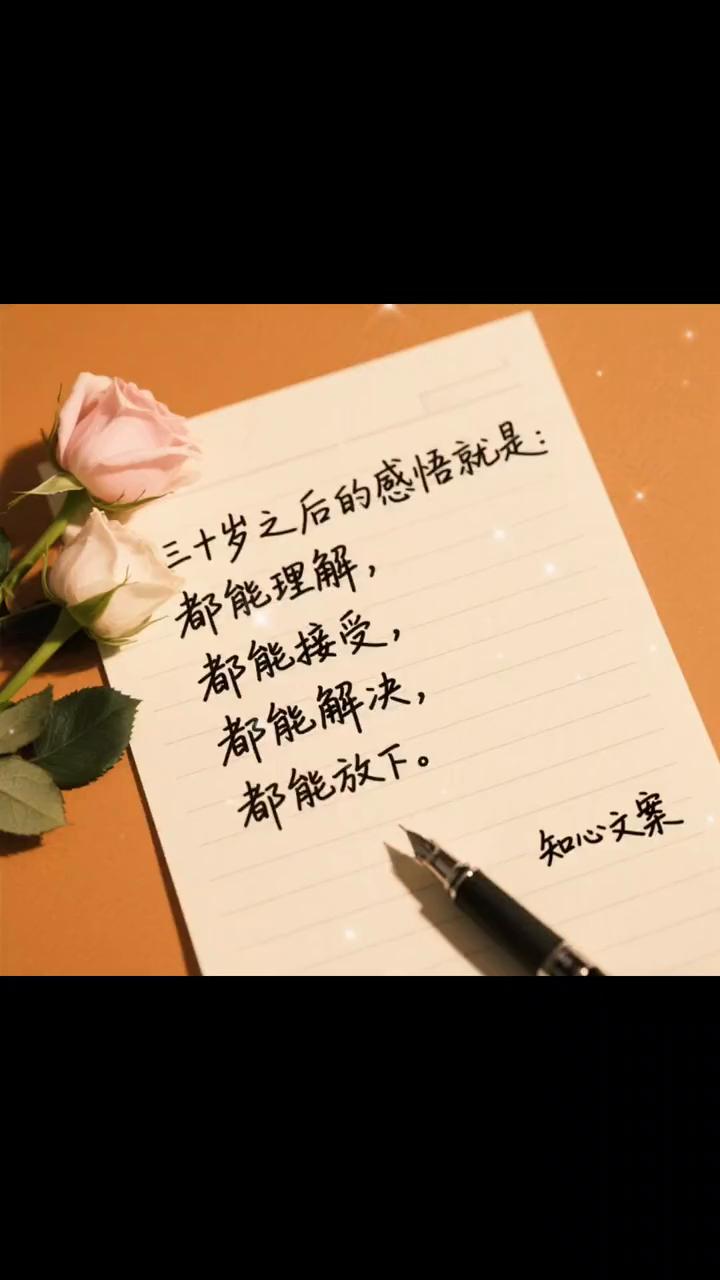 三十岁之后的感悟就是：
都能理解，
都能接受，
都能解决，
都能放下。
知心文案